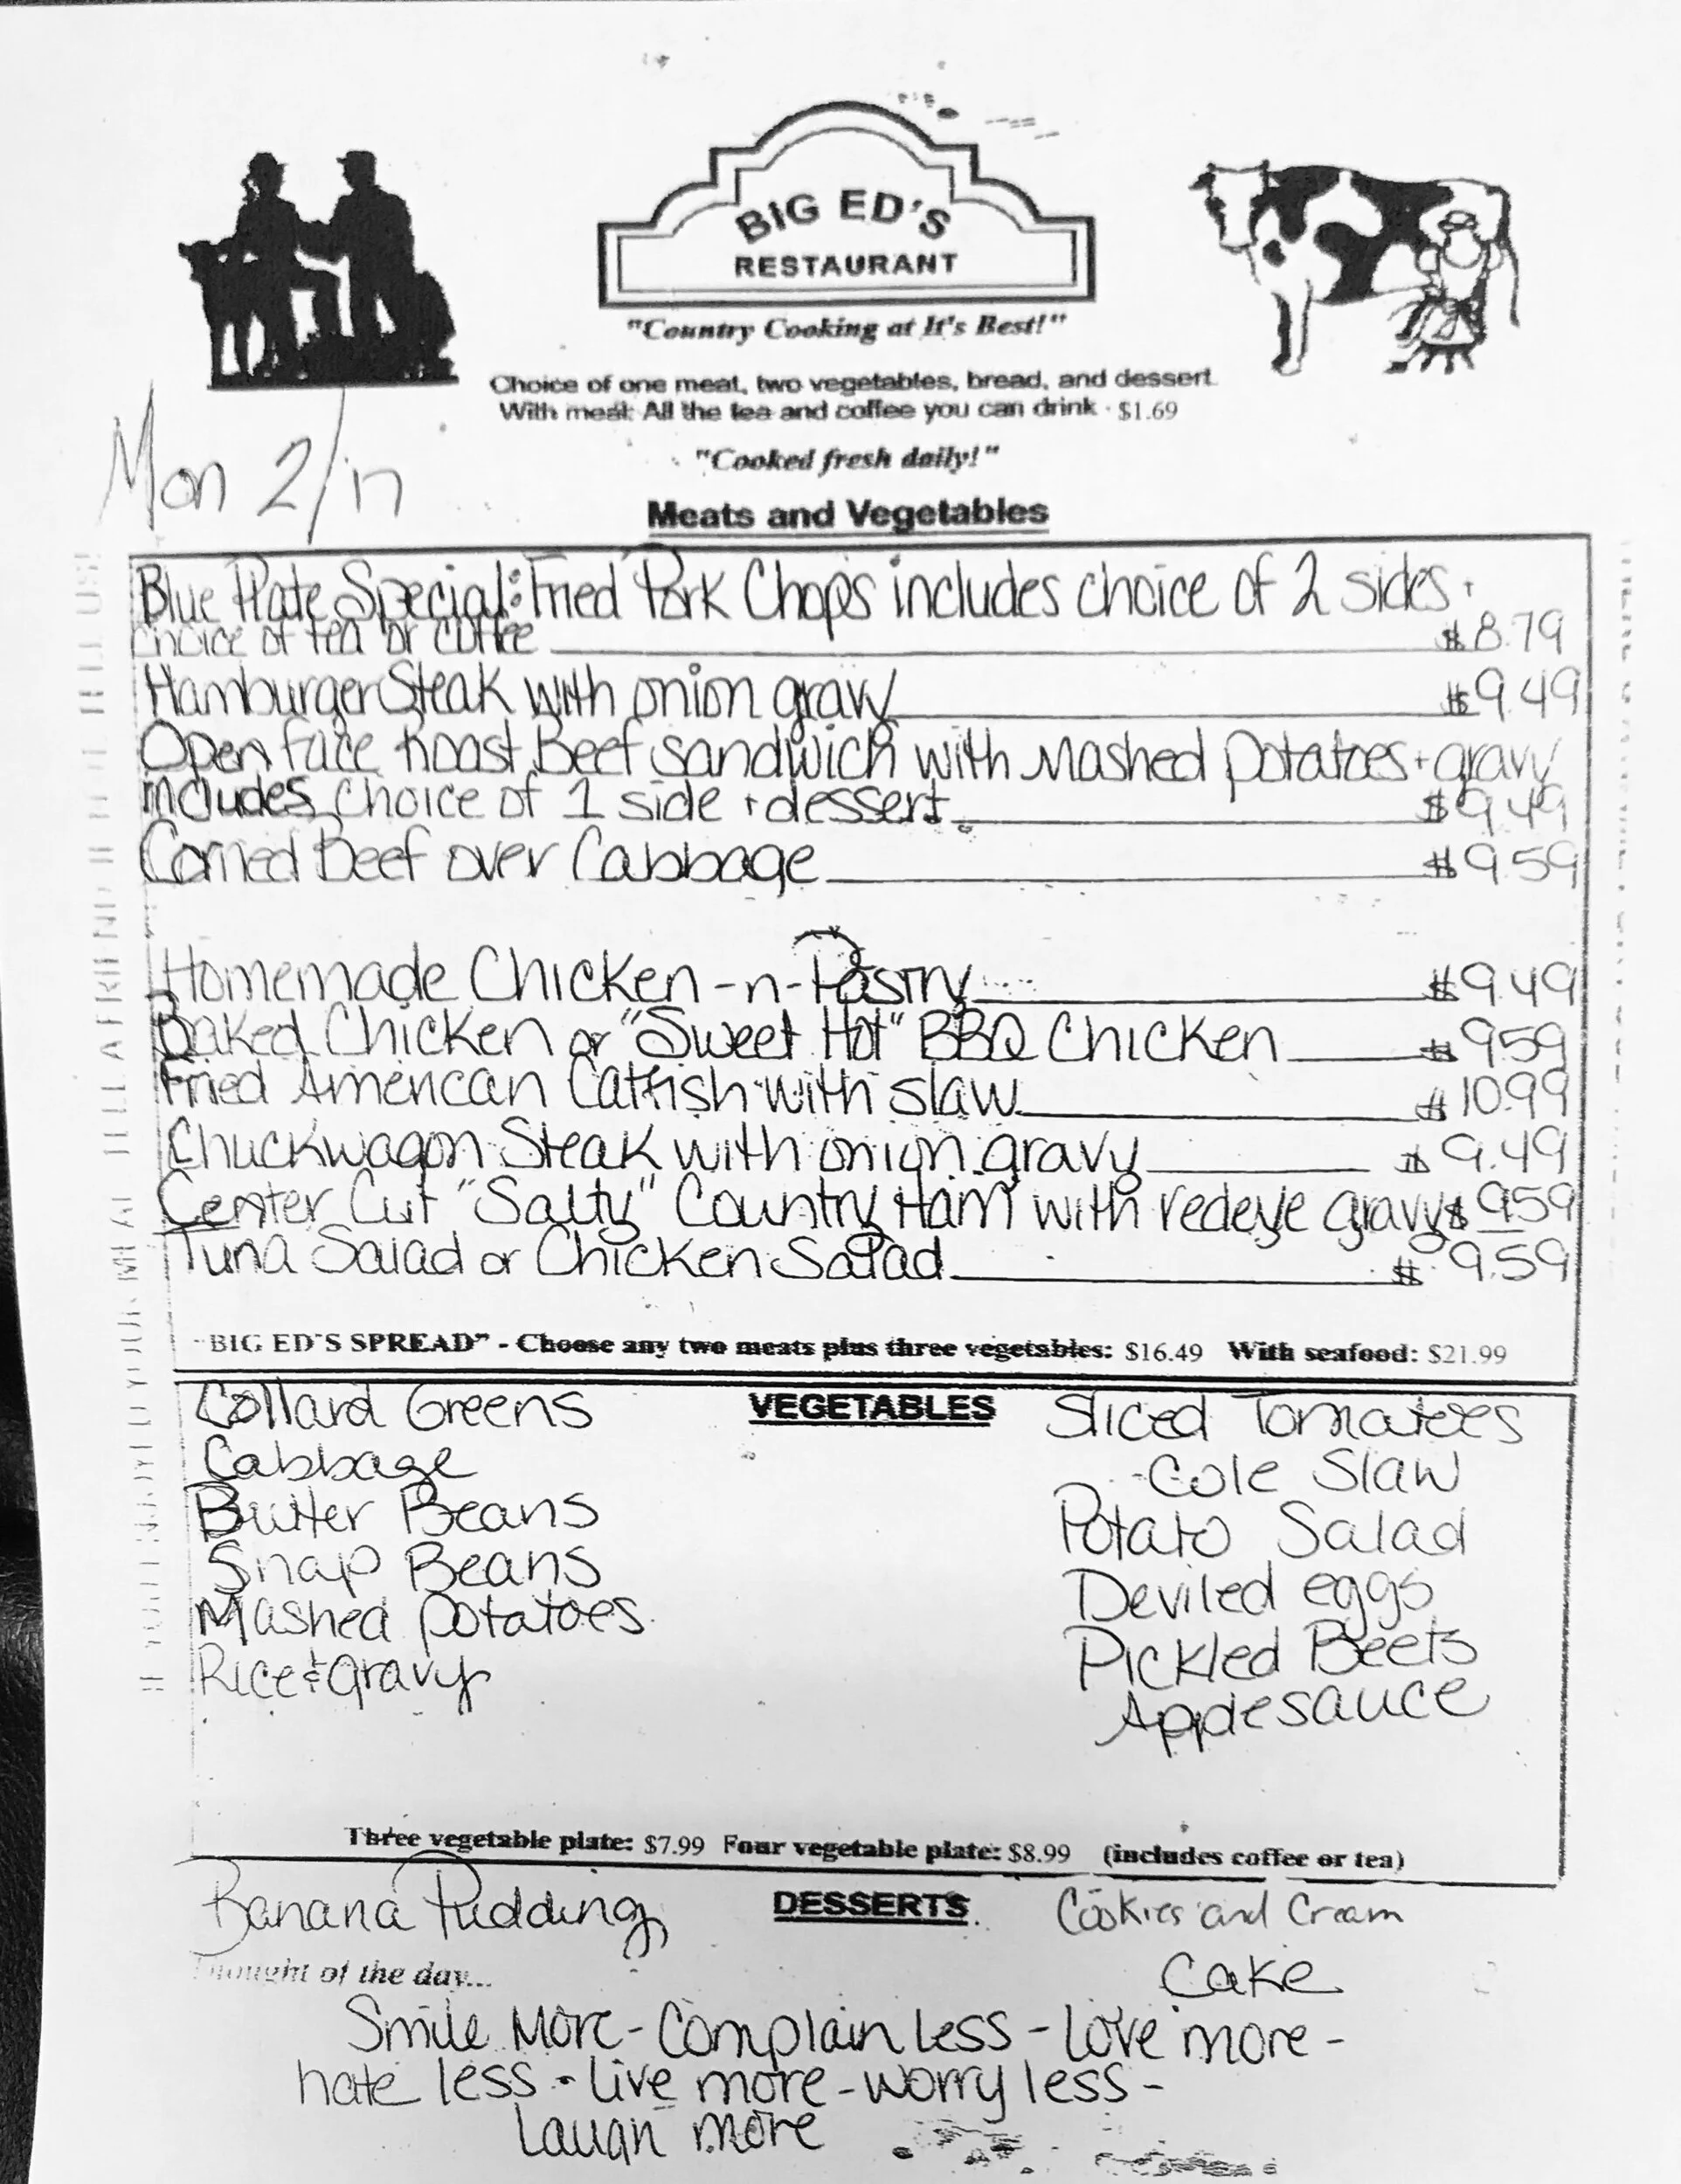 BIG ED'S
RESTAURANT
"Country Cooking at It's Best!"
Choice of one meat, two vegetables, bread, and dessert.
With meal: All the tea and coffee you can drink - $1.69
"Cooked fresh daily!"
Mon 2/17
Meats and Vegetables
Blue Plate Special: Fried Pork Chops includes choice of 2 sides +
choice of tea or coffee $8.79
Hamburger Steak with onion gravy $9.49
Open face Roast Beef sandwich with Mashed potatoes + gravy
includes choice of 1 side + dessert $9.49
Corned Beef over Cabbage $9.59
Homemade Chicken-n-Pastry $9.49
Baked Chicken or "Sweet Hot" BBQ Chicken $9.59
Fried American Catfish with slaw $10.99
Chuckwagon Steak with onion gravy $9.49
Center Cut "Salty" Country Ham with redeye gravy $9.59
Tuna Salad or Chicken Salad $9.59
"BIG ED'S SPREAD" - Choose any two meats plus three vegetables: $16.49 With seafood: $21.99
VEGETABLES
Collard Greens
Cabbage
Butter Beans
Snap Beans
Mashed potatoes
Rice & gravy
Sliced Tomatoes
Cole Slaw
Potato Salad
Deviled eggs
Pickled Beets
Applesauce
Three vegetable plate: $7.99 Four vegetable plate: $8.99 (includes coffee or tea)
DESSERTS
Banana Pudding
Cookies and Cream
Cake
Thought of the day...
Smile More - Complain Less - Love more -
hate less - Live more - worry less -
Laugh more
IF YOU ENJOYED YOUR MEAL TELL A FRIEND IF NOT TELL US!